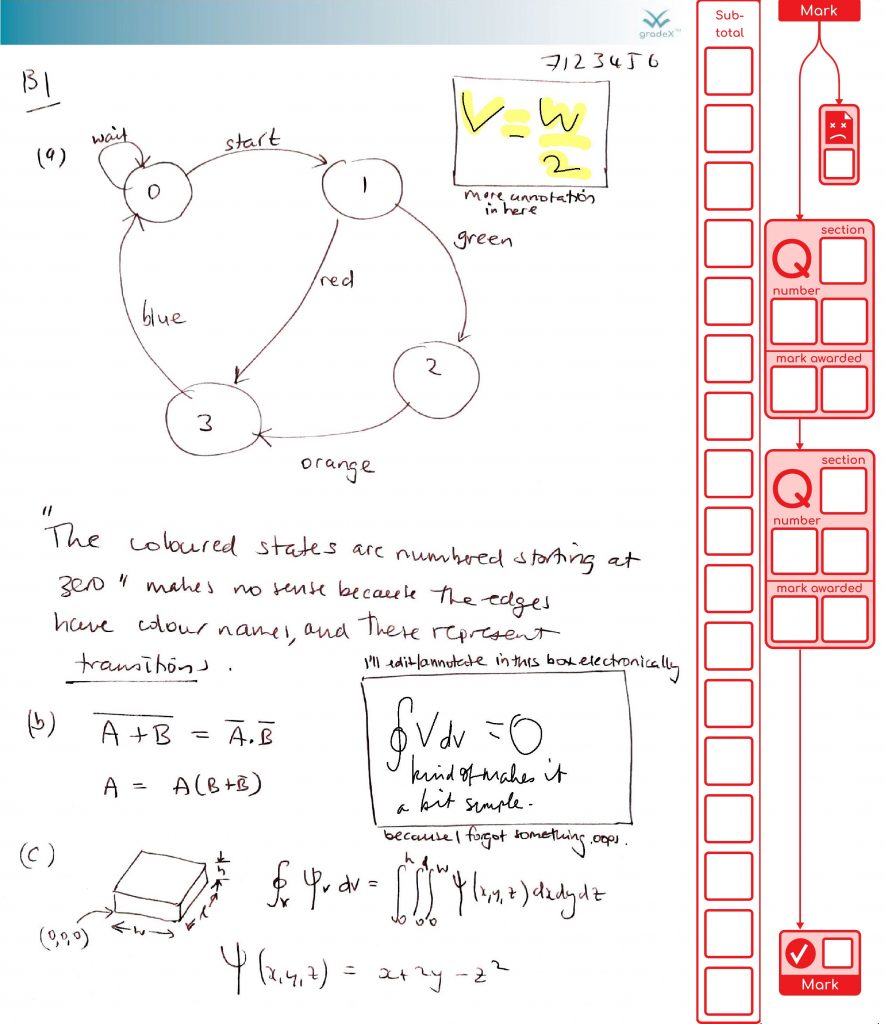 gradeX™
Sub-
total
Mark
7123456
B1
V = W
2
more annotation
in here
(a)
wait
start
0
1
green
red
blue
2
3
orange
section
Q
number
mark awarded
section
Q
number
mark awarded
"The coloured states are numbered starting at
zero" makes no sense because the edges
have colour names, and these represent
transitions.
I'll edit/annotate in this box electronically
(b)
A + B = A.B
A = A(B+B)
∮ V dv = 0
kind of makes it
a bit simple.
because I forgot something, oops.
(c)
h
l
w
(0,0,0)
∮v ψv dv = ∫0h ∫0d ∫0w ψ(x,y,z) dx dy dz
ψ(x,y,z) = x+2y-z²
Mark